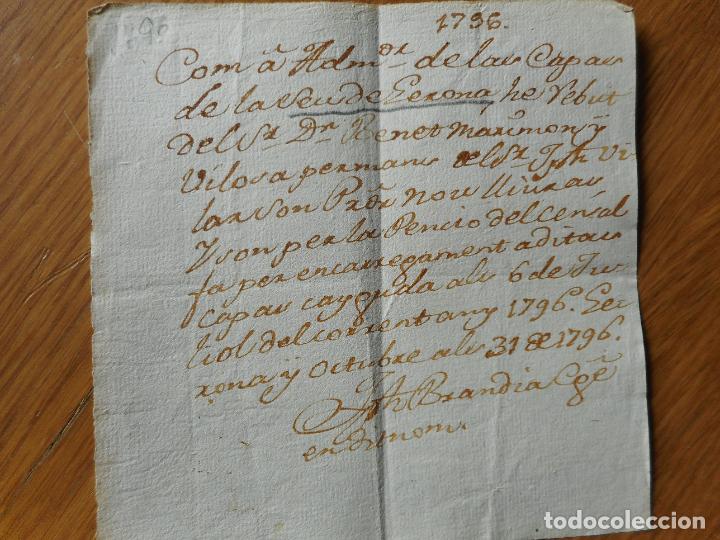 1796.
1796
Com â Admor. de las Capas
de la Seu de Gerona, he rebut
del Sr. Dr. Benet Marimon y
Vilosa per mans del Sr. Jph Vi-
lar son Prōr nou lliuras
Y son per la Penciò del Censal
fa per encarregament a ditas
Capas cayguda als 6 de Ju-
liol del corrent any 1796. Ge-
rona ÿ Octubre als 31 de 1796.
Jph Brandia
en dit nom.
todocoleccion
todocoleccion.net